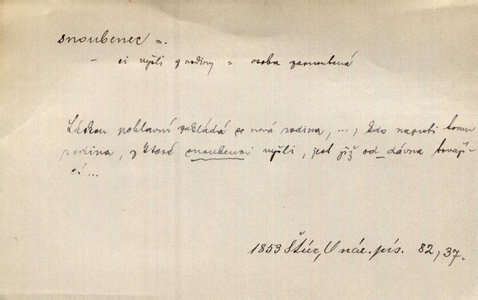 snoubenec m.
– ci vyšli z rodiny = osoba zasnoubená
Láskou pohlavní zakládá se nová rodina, ...; kdo naproti tomu
rodina, z které snoubenci vyšli, jest již od dávna trvají-
cí ...
1853 Štúr, O nár. pís. 82, 37.